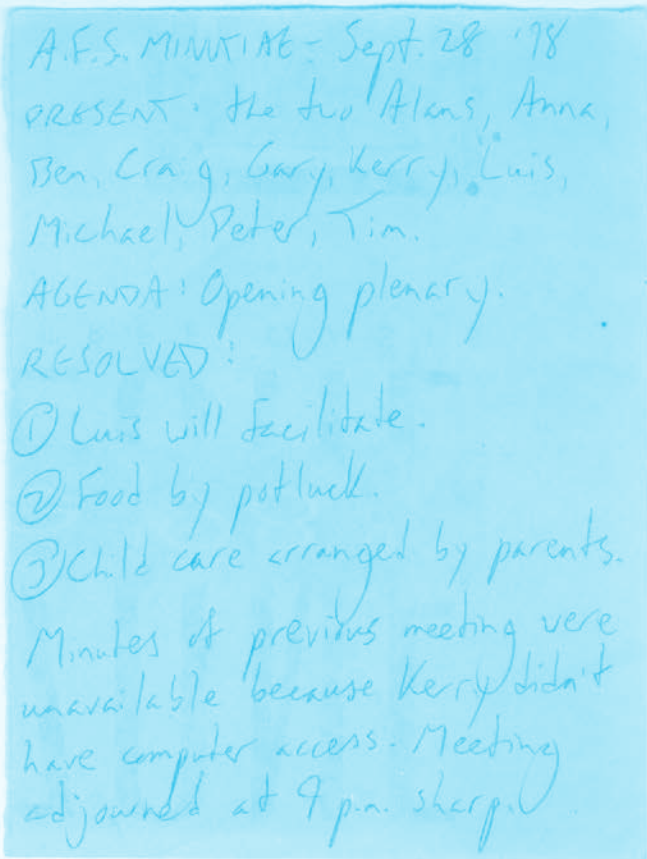 A.F.S. MINUTIAE - Sept. 28 '98
PRESENT - the two Alans, Anna,
Ben, Craig, Gary, Kerry, Luis,
Michael, Peter, Tim.
AGENDA: Opening plenary.
RESOLVED:
① Luis will facilitate.
② Food by potluck.
③ Child care arranged by parents.
Minutes of previous meeting were
unavailable because Kerry didn't
have computer access. Meeting
adjourned at 9 p.m. sharp.